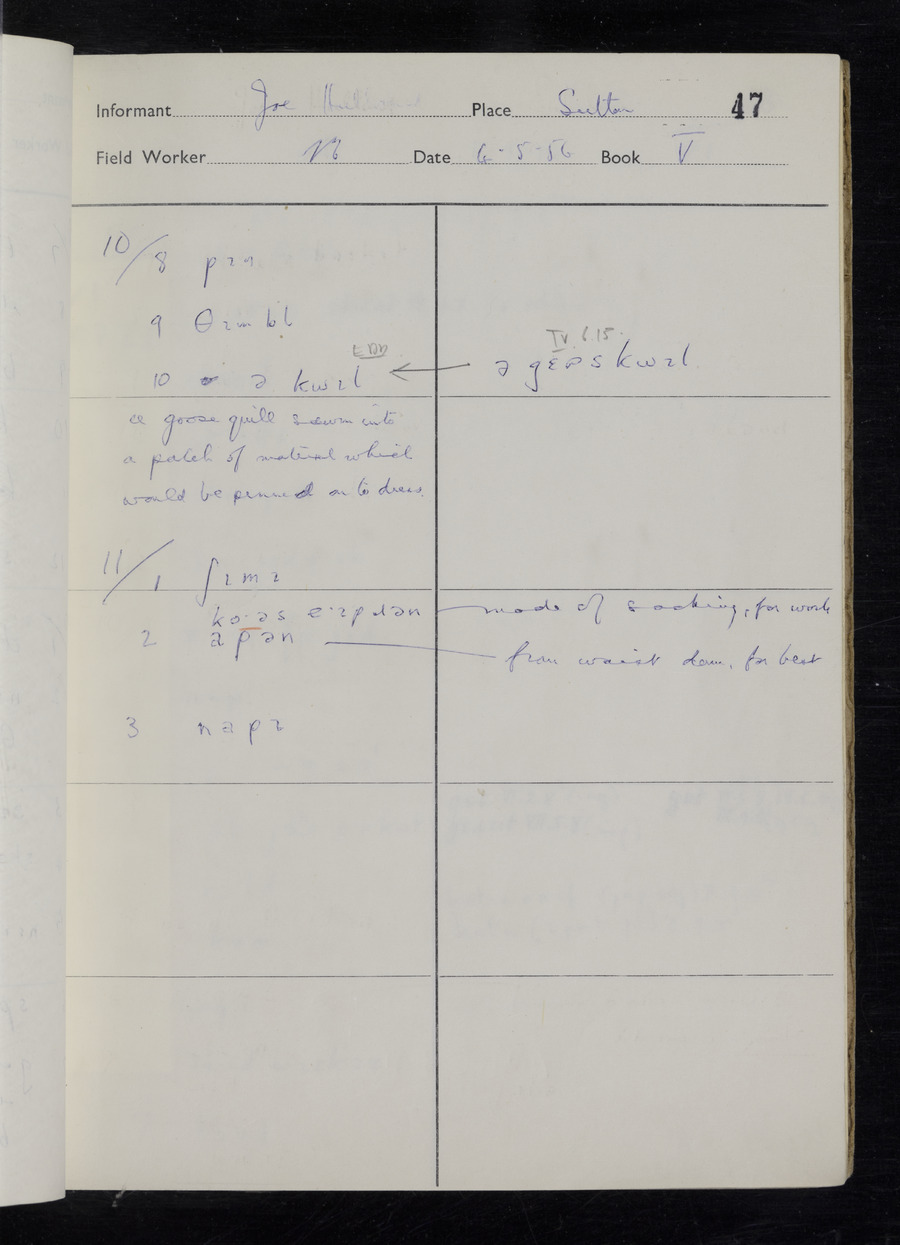 Informant Joe Place Sutton 47
Field Worker NB Date 6-5-56 Book V
10/8 pɪn
9 θɪmbl
IV. 6.15.
EDD
10 ə kwɪl ← ə gɛəs kwɪl
a goose quill sewn into
a patch of material which
would be pinned on to dress.
11/1 ʃɪmɪ
made of sacking, for work
2 apən from waist down, for best
3 napɪ